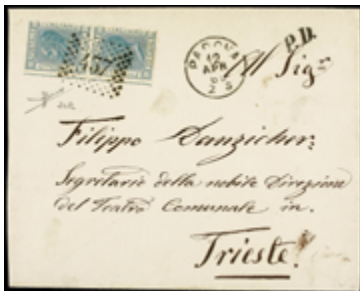 157
PADOVA
12
APR
2 S
P.D.
All Sigr
Filippo Danzicher
Segretario della nobile Direzione
del Teatro Comunale in.
Trieste!